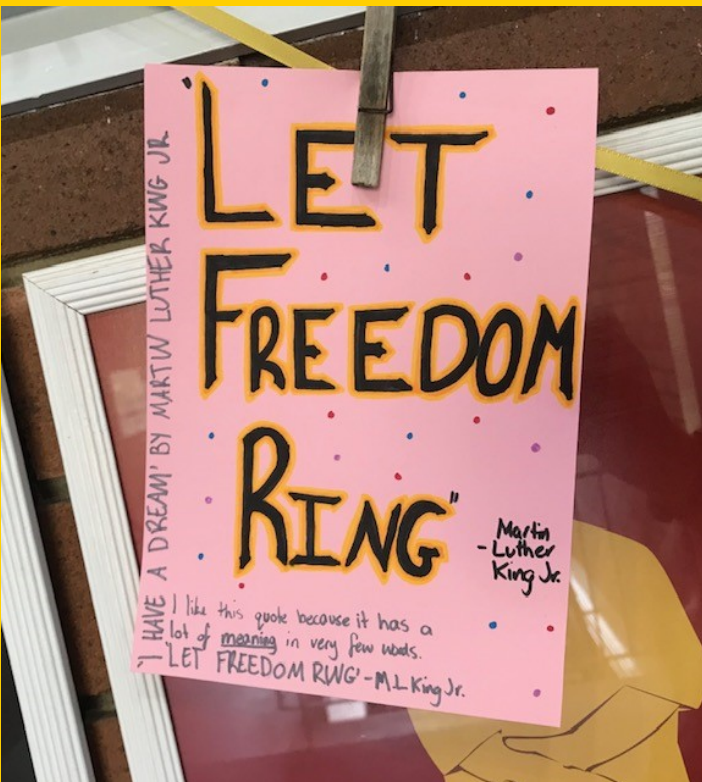 "LET
FREEDOM
RING"
Martin
- Luther
King Jr.
'I HAVE A DREAM' BY MARTIN LUTHER KING JR
I like this quote because it has a
lot of meaning in very few words.
'LET FREEDOM RING' - M L King Jr.